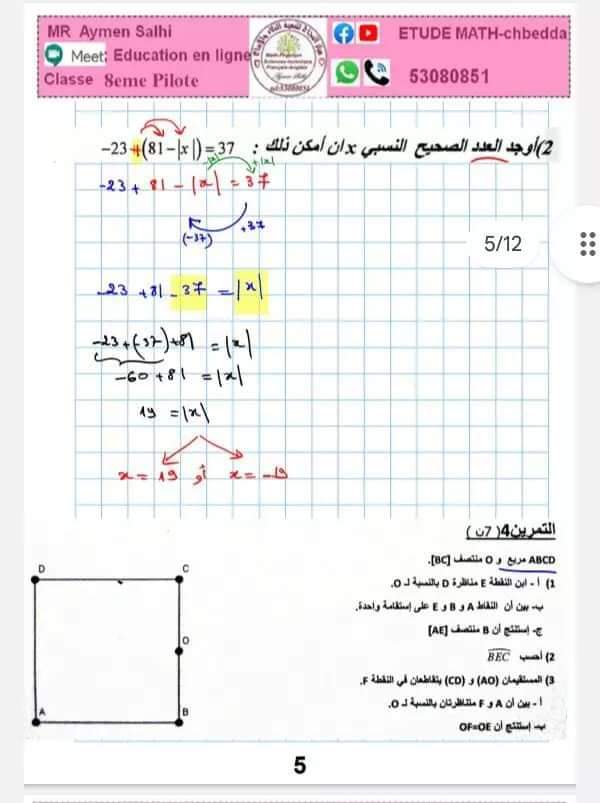 MR Aymen Salhi
Meet: Education en ligne
Classe 8eme Pilote
ETUDE MATH-chbedda
53080851
2)أوجد العدد الصحيح النسبي x ان أمكن ذلك : -23+(81-|x|)=37
-|x| +|x|
-23+ 81 - |x| = 37
(-37) +37
5/12
-23 +81 - 37 = |x|
-23+(-37)+81 = |x|
-60+81 = |x|
19 = |x|
x = 19 أو x = -19
التمرين4( 7ن)
ABCD مربع و O منتصف [BC].
1) أ - ابن النقطة E مناظرة D بالنسبة لـ O.
ب- بين أن النقاط A و B و E على إستقامة واحدة.
ج- إستنتج أن B منتصف [AE]
2) أحسب BEC
3) المستقيمان (AO) و (CD) يتقاطعان في النقطة F.
أ - بين أن A و F متناظرتان بالنسبة لـ O.
ب- إستنتج أن OF=OE
D C
O
A B
5